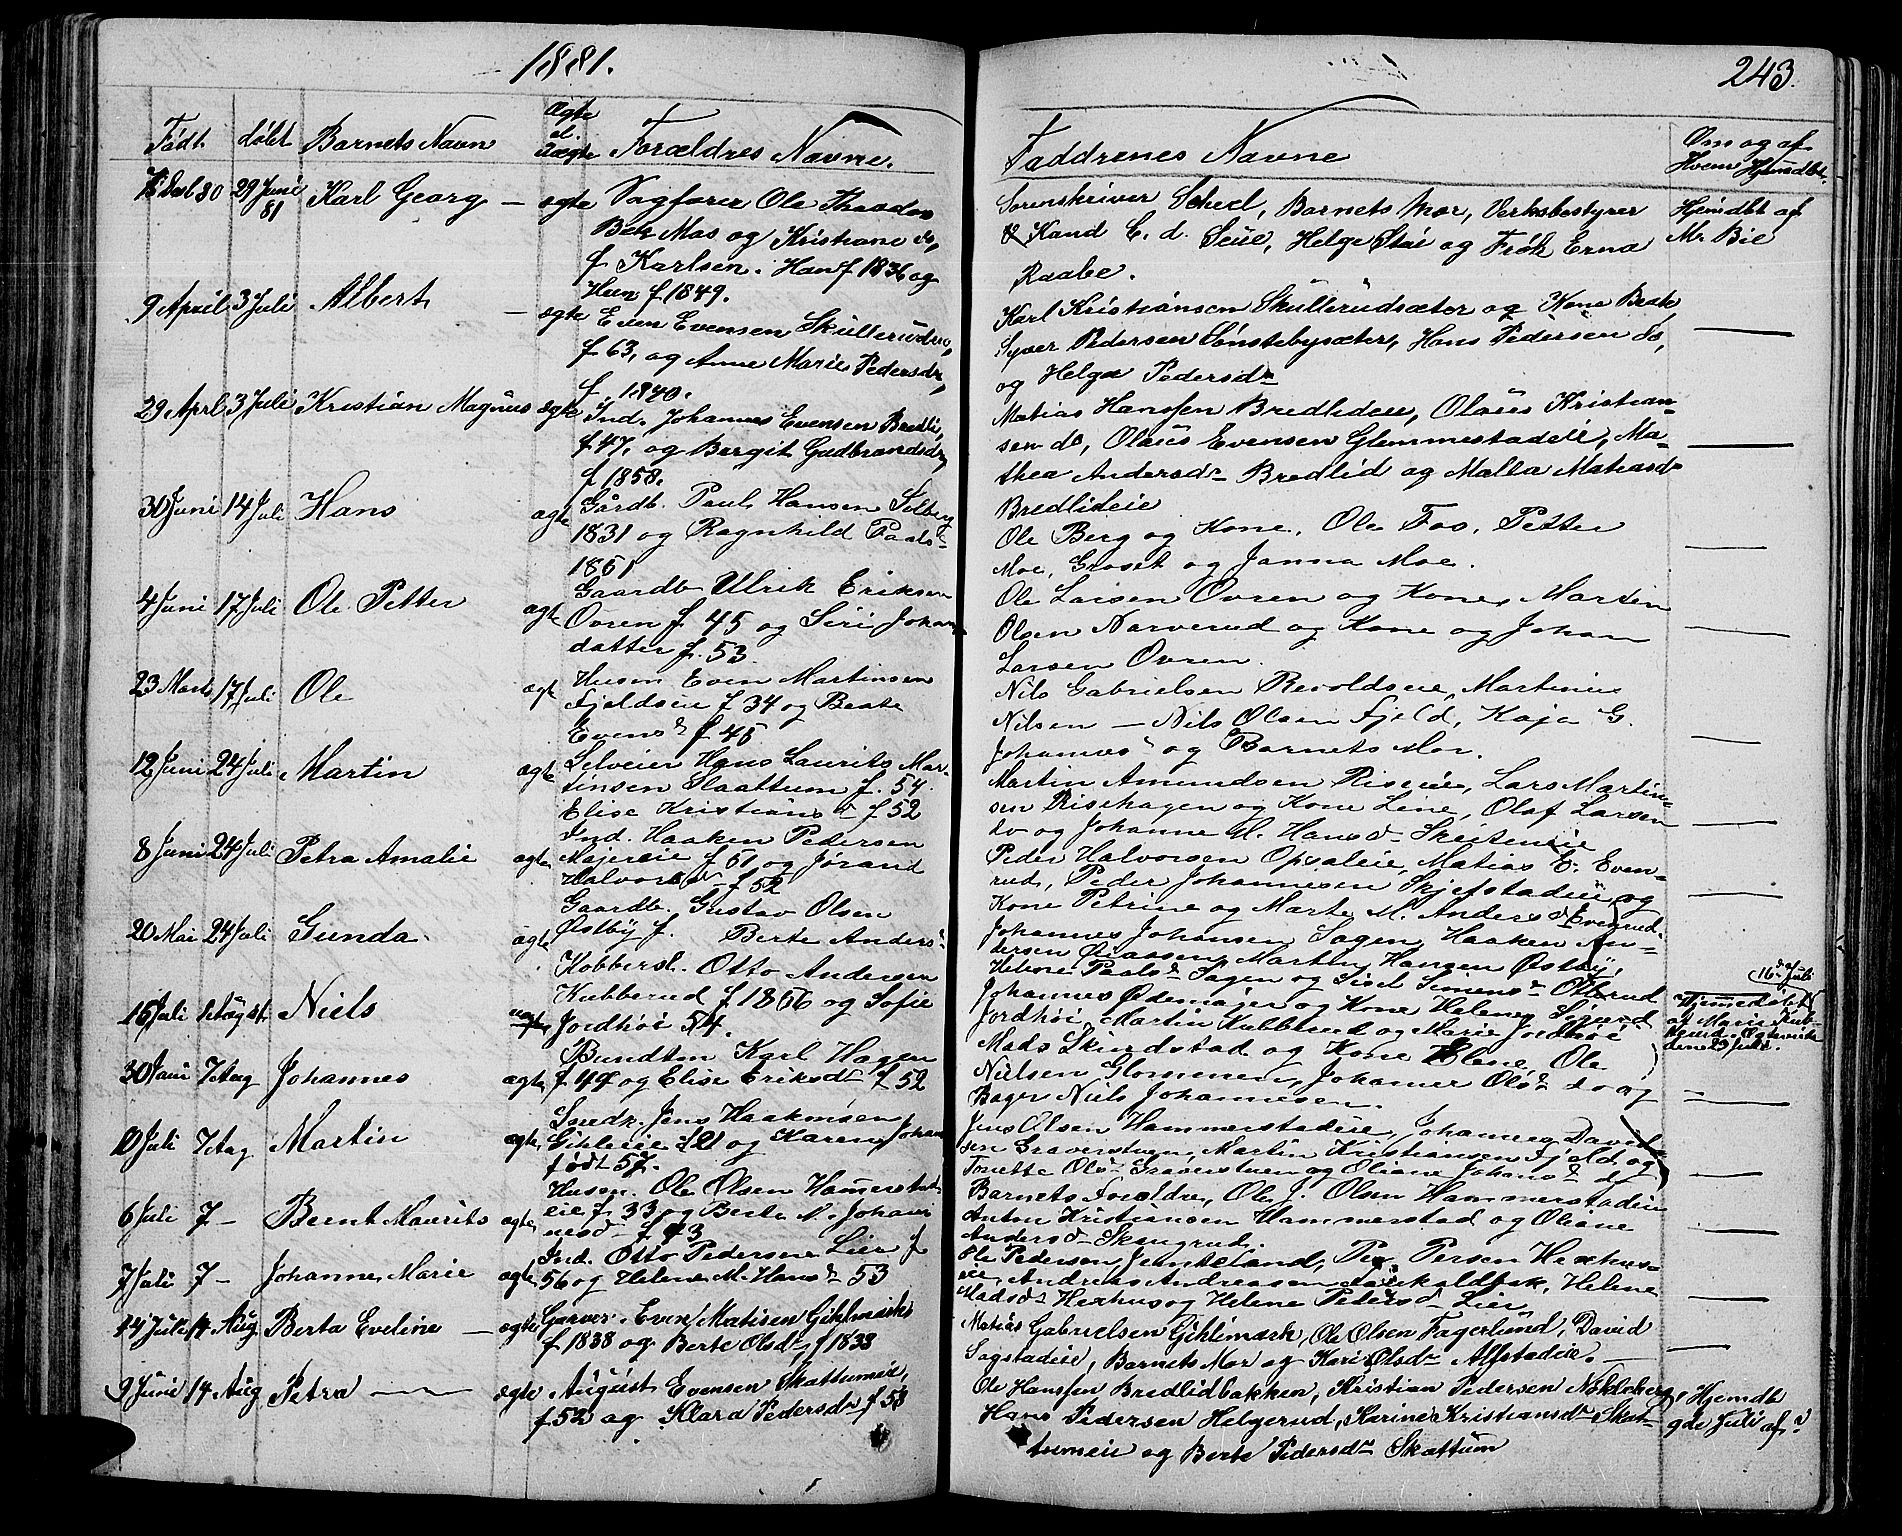 1881.
243.
Født døbt Barnets Navn Ægte el. Uægte Forældres Navne.
Faddrenes Navne
Om og af Hvem Hjemdbt.
80 29 Juni 81 Karl Georg — ægte Sagfører Ole Theodor
Mos og Kristiane
f Karlsen. Han f 1836 og
Hun f 1849.
Sorenskriver Scheel, Barnets Mor, Verksbestyrer
Kand C. d. Seue, Helge Stai og Frøk Erna
Raabe.
Hjemdbt af
Mr Bie
9 April 3 Juli Albert — ægte Even Evensen Skullerudeie,
f 63, og Anne Marie Pedersdr,
f. 1840.
Karl Kristiansen Skullerudsæter og Kone Beate
Syver Pedersen Sønstebysæter, Hans Pedersen do,
og Helge Pedersdr
29 Aprl 3 Juli Kristian Magnus ægte Ind. Johannes Evensen Bredli,
f 47, og Bergit Gudbrandsdr,
f 1858.
Matias Hanssen Bredlideie, Olaus Kristian-
sen do, Olaus Evensen Glemmestadeie, Ma-
thea Andersdr Bredlid og Malla Matiasdr
Bredlideie
30 Juni 14 Juli Hans ægte Gårdb. Paul Hansen Solberg
1831 og Ragnhild Paalsdr
1861
Ole Berg og Kone, Ole Fos, Petter
Moe, Groset og Janna Moe.
4 Juni 17 Juli Ole Petter ægte Gaardb Ulrik Eriksen
Ovren f. 45 og Siri Johans
datter f. 53.
Ole Larsen Ovren og Kone, Martin
Olsen Narverud og Kone og Johan
Larsen Ovren.
23 Mars 17 Juli Ole ægt Husm Even Martinsen
Fjeldseie f 34 og Beate
Evensd f 45
Nils Gabrielsen Revoldseie, Martinius
Nilsen — Nils Olsen Fjeld, Kaja G.
Johannesd og Barnets Mor.
12 Juni 24 Juli Martin ægte Selveier Hans Laurits Mar-
tinsen Slaattum f. 54.
Elise Kristiansd f 52
Martin Amundsen Riseeie, Lars Martin-
sen Risehagen og Kone Lene, Olaf Larsen
do og Johanne M. Hansd Skeiteneie
8 Juni 24 Juli Petra Amalie ægte Ind. Haaken Pedersen
Majereie f 61 og Jørand
Halvorsd f 52
Peder Halvorsen Opsaleie, Matias E. Even-
rud, Peder Johannesen Skjefstadeie og
Kone Petrine og Marte M. Andersd Evenrud.
20 Mai 24 Juli Gunda. ægte Gaardb. Gustav Olsen
Østby f. Berte Andersd
Johannes Johansen Sagen, Haaken An-
dersen Øiaasen, Martin Hangen Østby,
Helene Paalsd Sagen og Sisel Simensd Otterud
15 Juli 1 Augst. Niels Kobbersl. Otto Andersen
Kubberud f 1866 og Sofie
Jordhøi 54.
Johannes Ødemajer og Kone Helene, Sigurd
Jordhøi, Martin Kubberud og Marie Jordhøi
16 Juli
Hjemmedøbt
af Marie Kub-
berud
30 Juni 7 Aug Johannes ægte Bundtm Karl Hagen
f 47 og Elise Eriksdr f 52
Mads Skindstad og Kone Elene, Ole
Nielsen Glommen, Johanne Olsd do og
Bager Niels Johannesen.
10 Juli 7 Aug Martin ægte Snedk. Jens Haakonsen
Gihleeie f 21 og Karen Johan
født 57.
Jens Olsen Hammerstadeie, Johannes David-
sen Graverstuen, Martin Kristiansen Fjeld og
Tonette Olsd Graverstuen og Oliane Johansd do
6 Juli 7 — Bernt Maurits ægte Husm. Ole Olsen Hammerstad
eie f 33 og Berte M. Johan
nesd f 43
Barnets Forældre, Ole J. Olsen Hammerstadeie
Anton Kristiansen Hammerstad og Oliane
Andersd Skougrud.
7 Juli 7 — Johanne Marie ægte Ind. Otto Pedersen Lier f
56 og Helene M. Hansd 53
Ole Pedersen Persen Hexhus-
eie, Andreas Andreasen Helene
Madsdr Hexhus og Helene Petersdr Lier
14 Juli 14 Aug Berta Eveline — ægte Garver. Even Matisen Gihlemark
f 1838 og Berte Olsdr, f 1838
Matias Gabrielsen Gihlemark, Ole Olsen Fagerlund, David
Sogstadeie, Barnets Mor og Kari Olsdr Alfstadeie.
9 Juni 14 Aug Petra — ægte August Evensen Skattumeie,
f 52 og Klara Pedersdr f 58
Ole Hanssen Bredlidbakken, Kristian Pedersen Nøkleberg,
Hans Pedersen Helgerud, Karine Kristiansdr Skat-
tumeie og Berte Pedersdr Skattum
Hjemdbt
9de Juli af